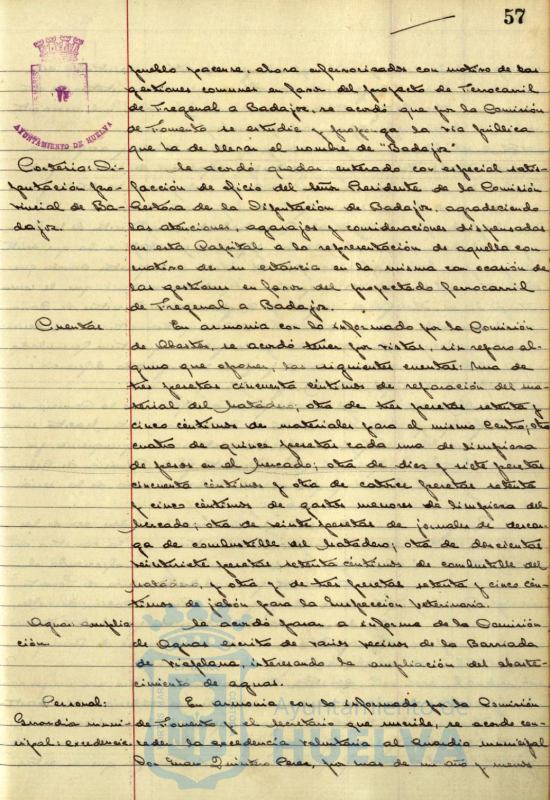 57
AYUNTAMIENTO DE HUELVA
pueblo pacense, ahora enfervorizados con motivo de las
gestiones comunes en favor del proyecto de Ferrocarril
de Fregenal a Badajoz, se acordó que por la Comisión
de Fomento se estudie y proponga la vía pública
que ha de llevar el nombre de "Badajoz"
Cortesía: Di-
putación pro-
vincial de Ba-
dajoz.
Se acordó quedar enterado con especial satis-
facción de oficio del Señor Presidente de la Comisión
Gestora de la Diputación de Badajoz, agradeciendo
las atenciones, agasajos y consideraciones dispensadas
en esta Capital a la representación de aquella con
motivo de su estancia en la misma con ocasión de
las gestiones en favor del proyectado ferrocarril
de Fregenal a Badajoz.
Cuentas
En armonía con lo informado por la Comisión
de Abastos, se acordó tener por vistas, sin reparo al-
guno que oponer, las siguientes cuentas: Una de
tres pesetas cincuenta céntimos de reparación del ma-
terial del Matadero; otra de tres pesetas setenta y
cinco céntimos de materiales para el mismo Centro; otra
cuatro de quince pesetas cada una de limpieza
de pesos en el Mercado; otra de diez y siete pesetas
cincuenta céntimos y otra de catorce pesetas setenta
y cinco céntimos de gastos menores de limpieza del
Mercado; otra de veinte pesetas de jornales de descar-
ga de combustible del Matadero; otra de doscientas
veintisiete pesetas setenta céntimos de combustible del
Matadero, y otra y de tres pesetas setenta y cinco cén-
timos de jabón para la Inspección Veterinaria.
Aguas: amplia-
ción.
Se acordó pasar a informe de la Comisión
de Aguas escrito de varios vecinos de la Barriada
de Viaplana, interesando la ampliación del abaste-
cimiento de aguas.
Personal:
Guardia muni-
cipal: excedencia.
En armonía con lo informado por la Comisión
de Fomento y el Secretario que suscribe, se acordó con-
ceder la excedencia voluntaria al Guardia municipal
Don Juan Quintero Perez, por mas de un año y menos
Ayuntamiento de
HUELVA